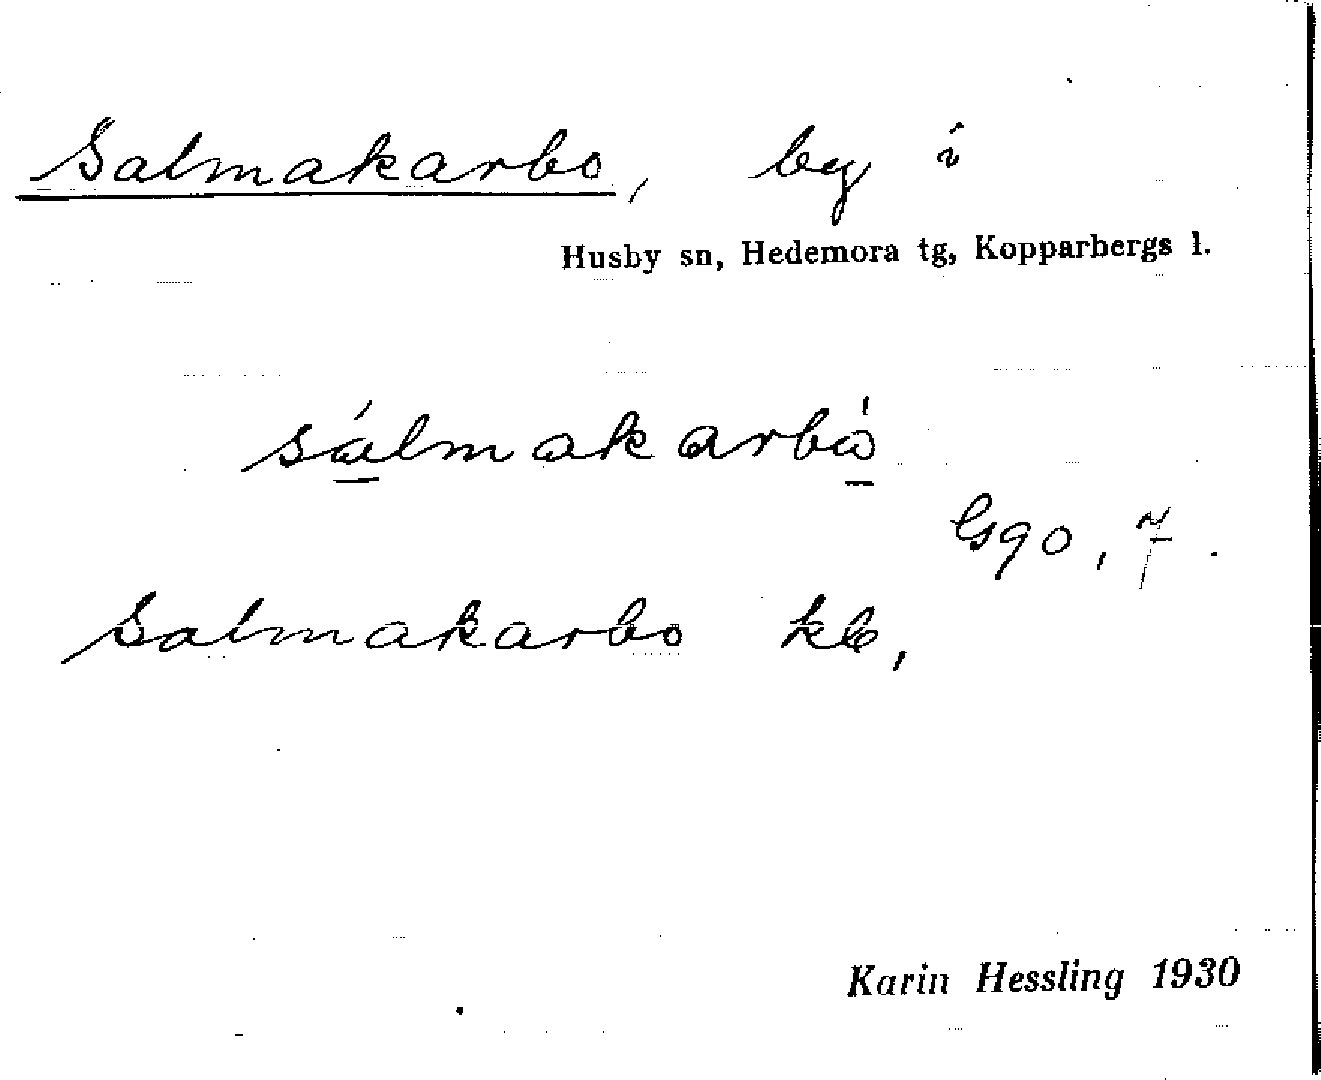 Salmakarbo, by i
Husby sn, Hedemora tg, Kopparbergs l.
sálmakarbó
Ggo, 7.
Salmakarbo kb,
Karin Hessling 1930